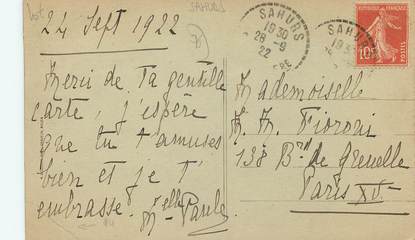 SAHURS
24 Sept 1922
Merci de Ta gentille
carte, j'espère
que tu t'amuses
bien et je t'
embrasse. Melle Paule
SAHURS
19 30
28 -9
22
SAHURS
REPUBLIQUE FRANÇAISE
10
Mademoiselle
M. M. Fioroni
138 Bd de Grenelle
Paris XV.